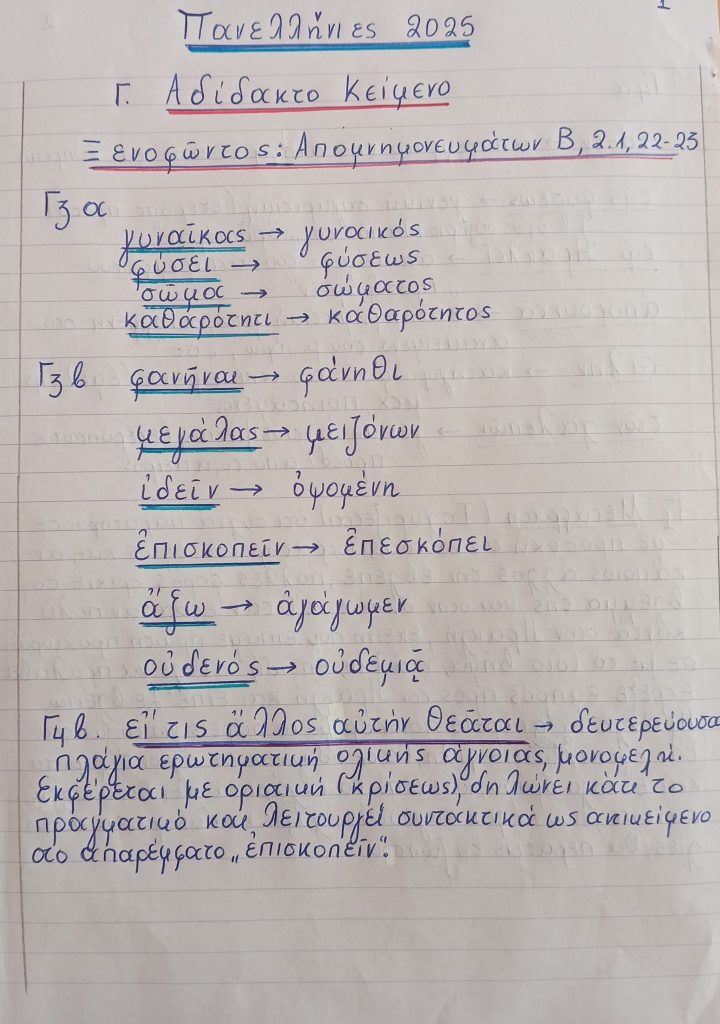 1
Πανελλήνιες 2025
Γ. Αδίδακτο Κείμενο
Ξενοφῶντος: Απομνημονευμάτων Β, 2.1, 22-23
Γ3 α
γυναῖκας → γυναικός
φύσει → φύσεως
σῶμα → σώματος
καθαρότητι → καθαρότητος
Γ3 β φανῆναι → φάνηθι
μεγάλας → μειζόνων
ἰδεῖν → ὀψομένη
ἐπισκοπεῖν → ἐπεσκόπει
ἄξω → ἀγάγωμεν
οὐδενός → οὐδεμιᾷ
Γ4 β. εἴ τις ἄλλος αὐτήν θεᾶται → δευτερεύουσα
πλάγια ερωτηματική ολικής άγνοιας, μονομελή.
Εκφέρεται με οριστική (κρίσεως), δηλώνει κάτι το
πραγματικό και λειτουργεί συντακτικά ως αντικείμενο
στο απαρέμφατο „ἐπισκοπεῖν".